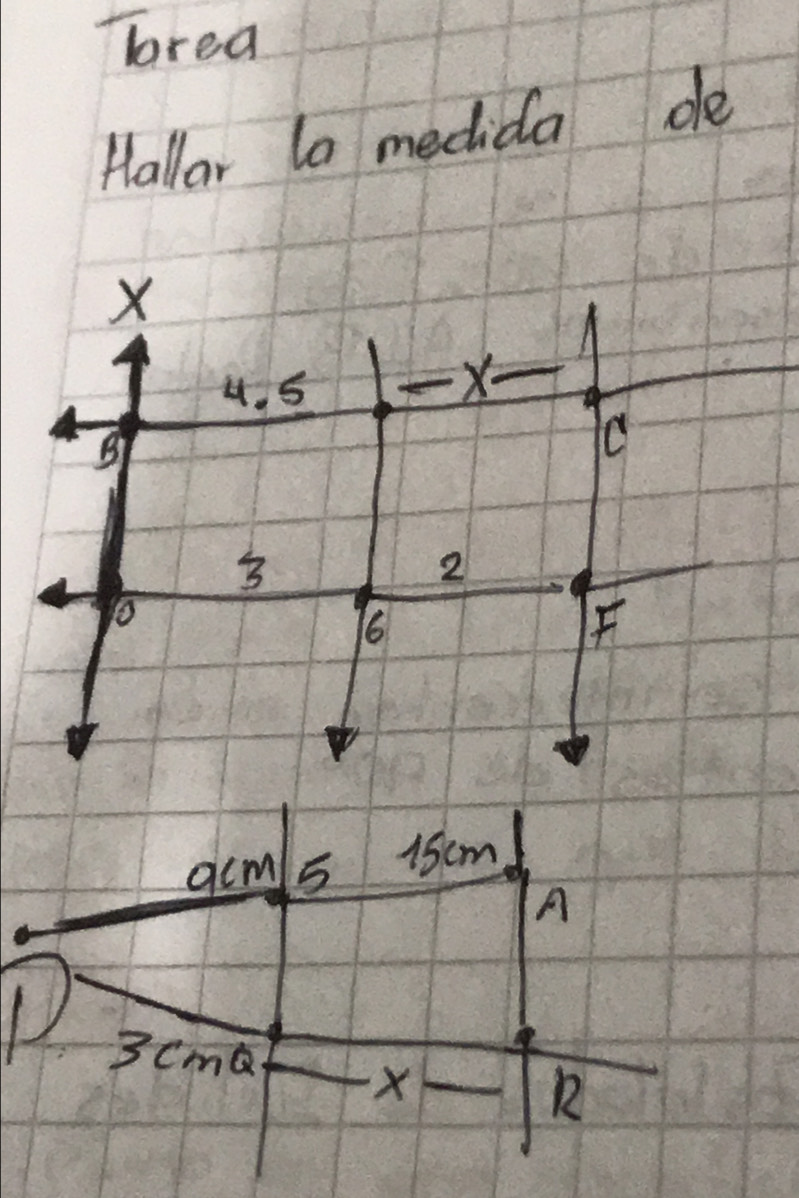 Tarea
Hallar la medida de
X
4.5 — X —
B C
3 2
O 6 F
9cm 5 15cm
A
P
3cm Q — X — R